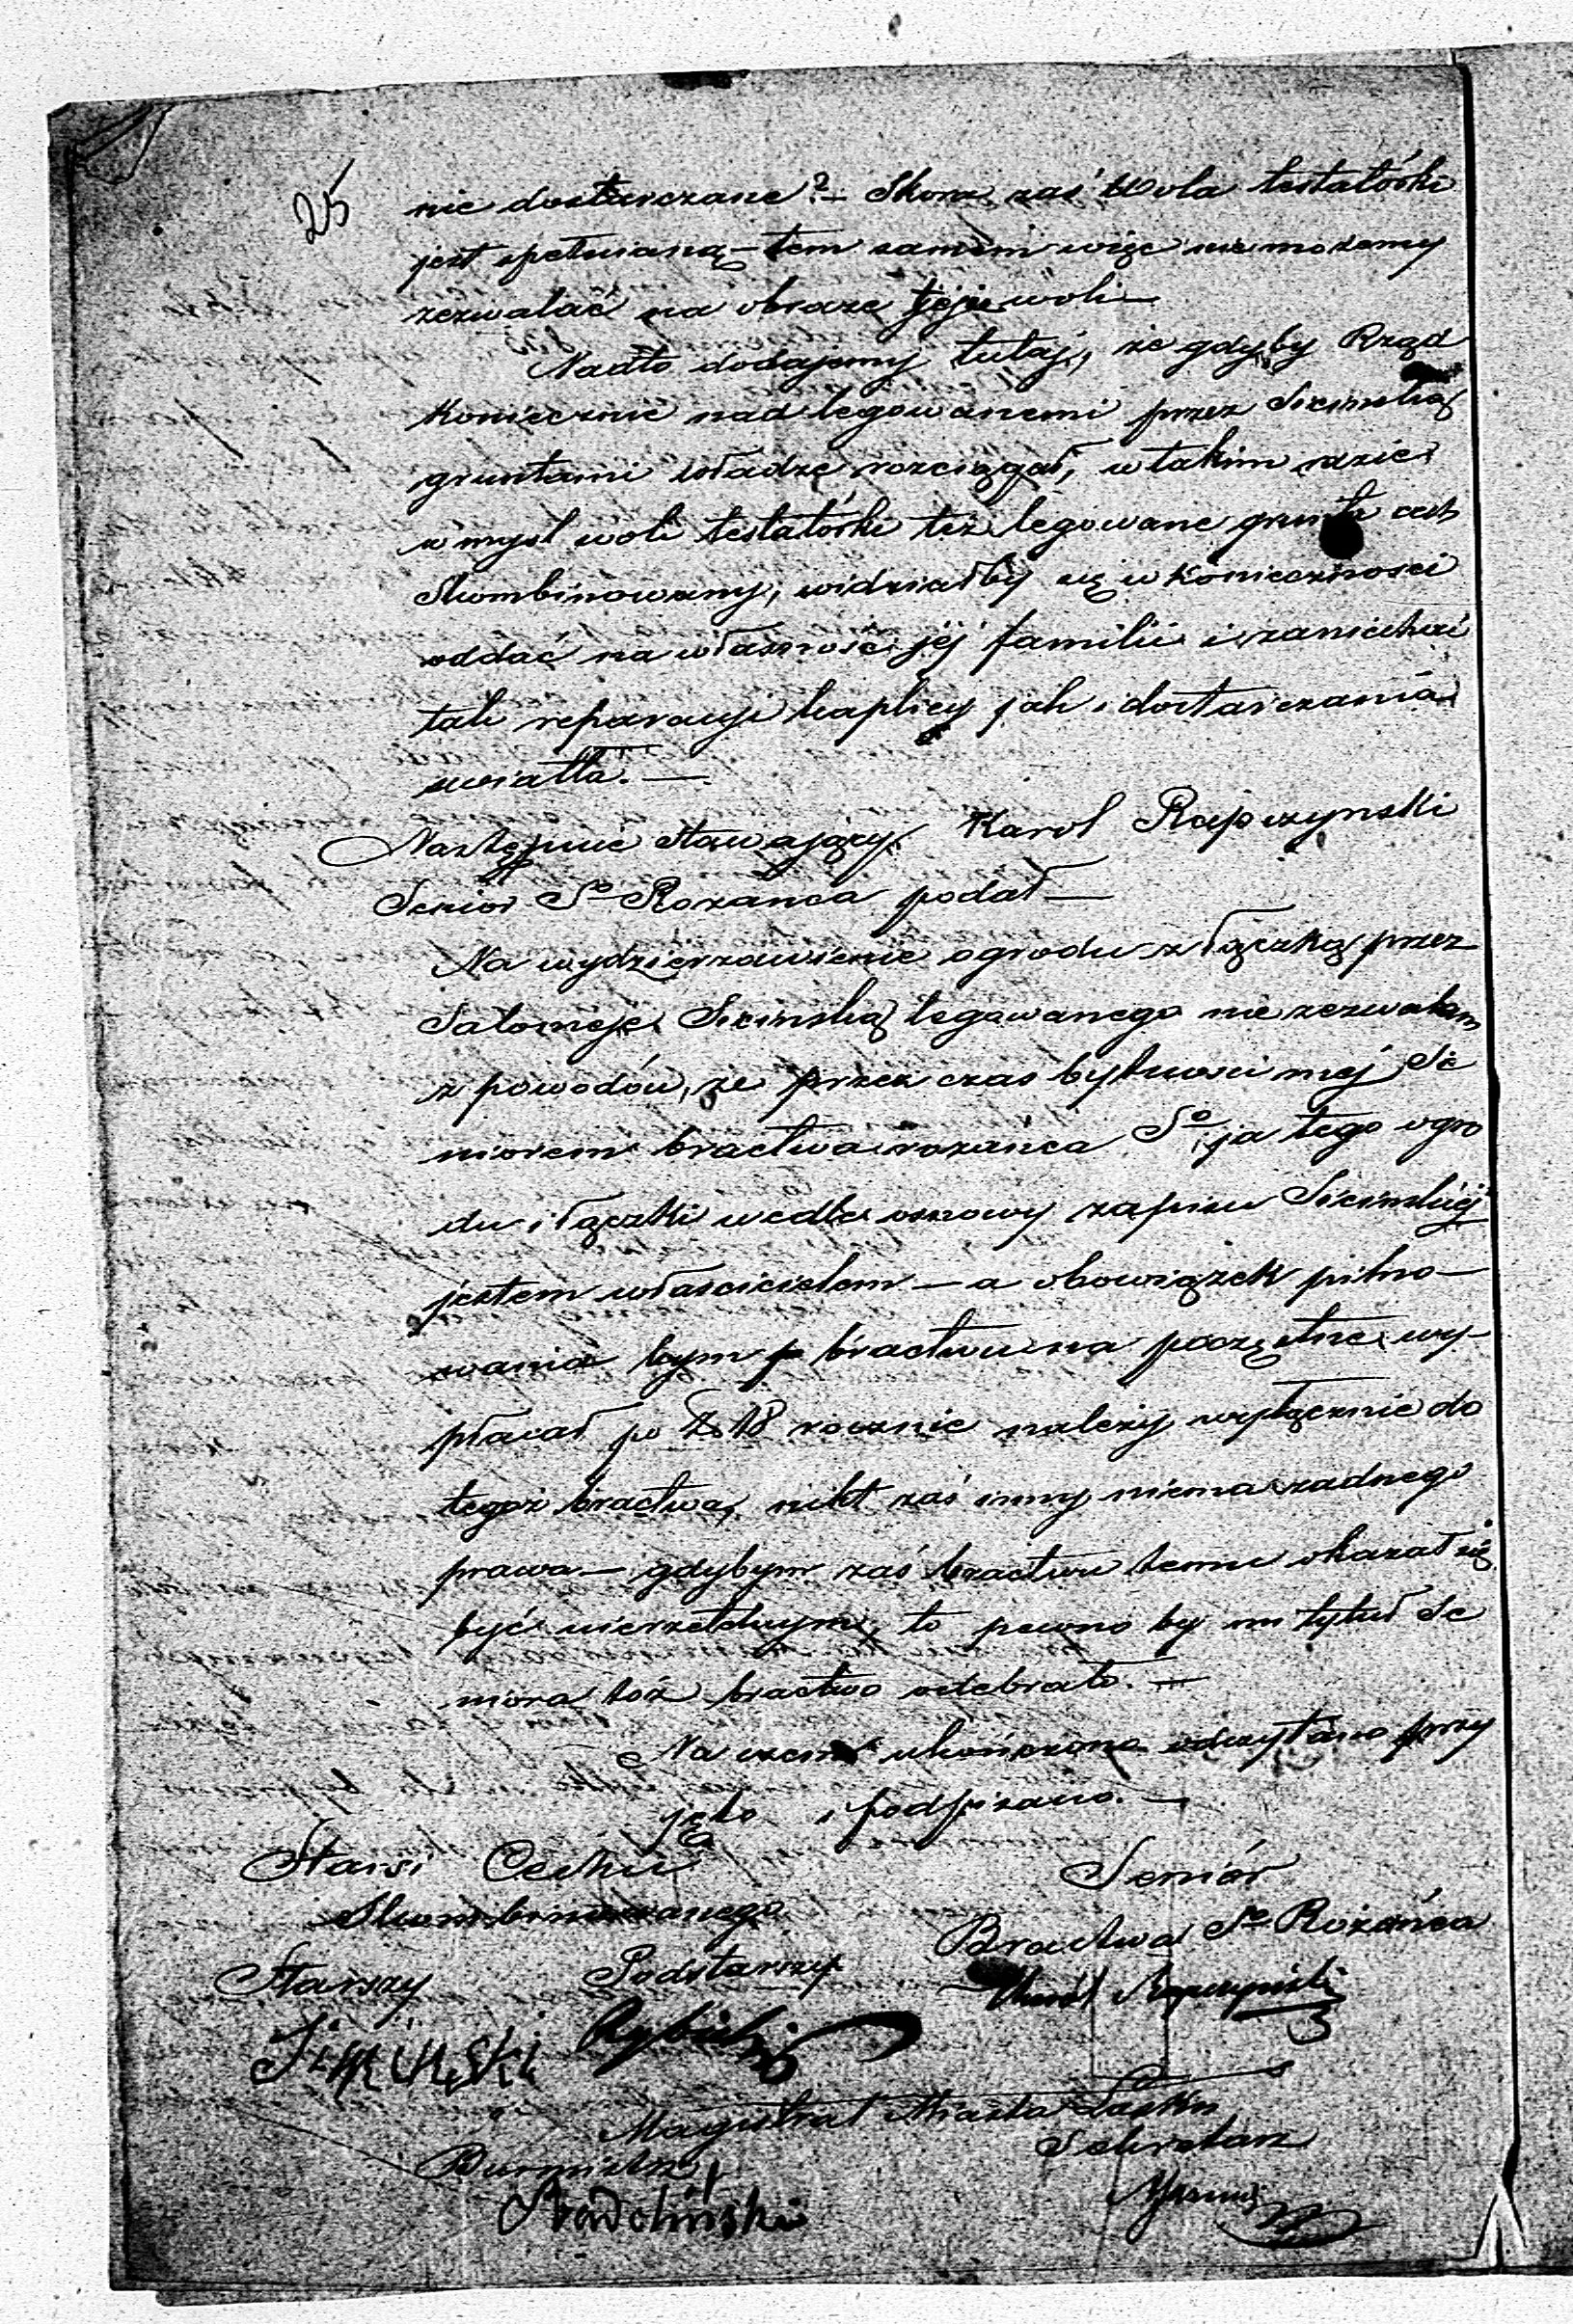 25
nie dostarczane? — Skoro zaś Wola testatorki
jest spełnianą — tem samem więc nie możemy
zezwalać na obrazę jej woli —
Nadto dodajemy tutaj, że gdyby Rząd
koniecznie nad legowanemi przez Sicinską
gruntami władzę rozciągał, w takim razie
w mysl woli testatorki też legowane grunta cech
Skombinowany, widziałby się w Koniecznosci
oddać na własność jej familii i zaniechać
tak reparacyi kaplicy jak i dostarczania
swiatła. —
Następnie stawający Karol Rapczynski
Senior So Rożanca podał —
Na wydzierzawienie ogrodu z łączką przez
Salomeję Sicinską legowanego nie zezwalam
z powodów, ze przez czas bytnosci mej Se
niorem bractwa rozańca So ja tego ogro
du i łączki wedle osnowy zapisu Sicinskiej
jestem własicielem — a obowiązek pilno—
wania bym bractwu na poczętne wy—
płacał po Z 18 rocznie należy wyłącznie do
tegoż bractwa, nikt zaś inny niema zadnego
prawa — gdybym zaś bractwu temu okazał się
być nierzetelnym, to pewno by mi tytuł Se
niora toż bractwo odebrało. —
Na czem ukończono odczytano przy
jęto i podpisano. —
Starsi Cechu Seniór
Skombinowanego
Bractwa So Rożańca
Starszy Podstarszy
Karol Rapczynski
Rybicki
Magistrat Miasta Łasku
Burmistrz Sekretarz